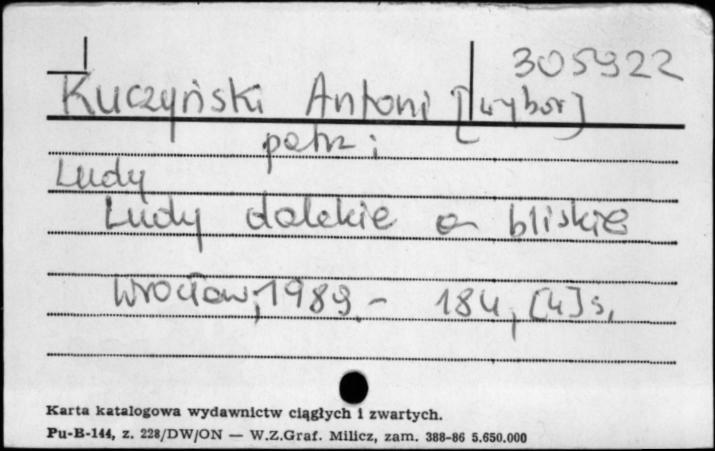 305922
Kuczyński Antoni [wybór]
patrz:
Ludy
Ludy dalekie a bliskie
Wrocław, 1989. - 184, [4] s.
Karta katalogowa wydawnictw ciągłych i zwartych.
Pu-B-144, z. 228/DW/ON — W.Z.Graf. Milicz, zam. 388-86 5.650.000